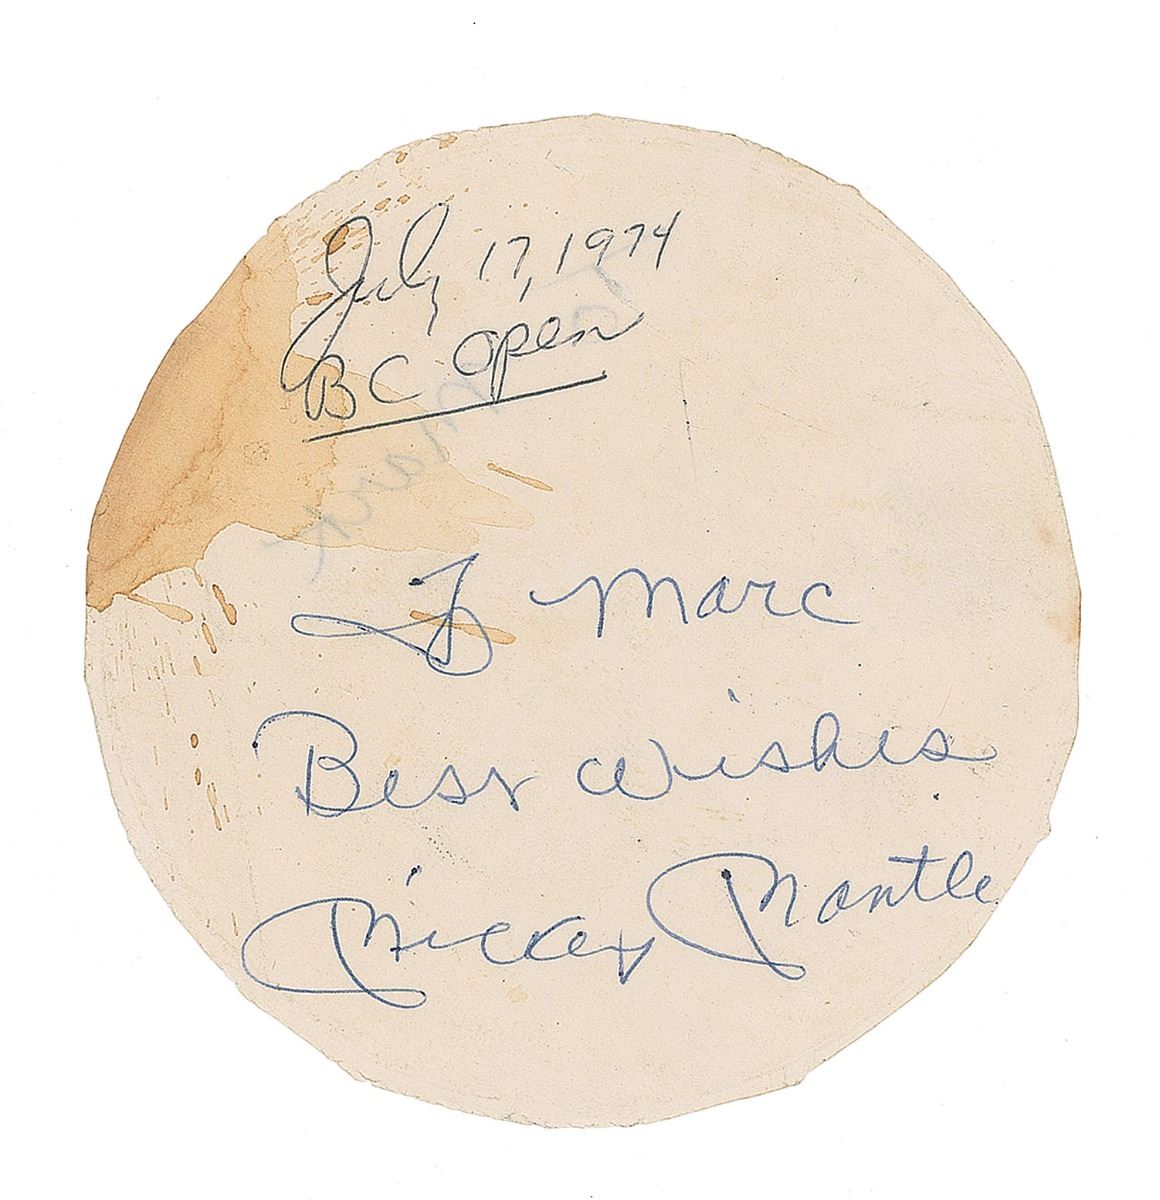 July 17, 1974
BC Open
Mark
To Marc
Best Wishes
Mickey Mantle